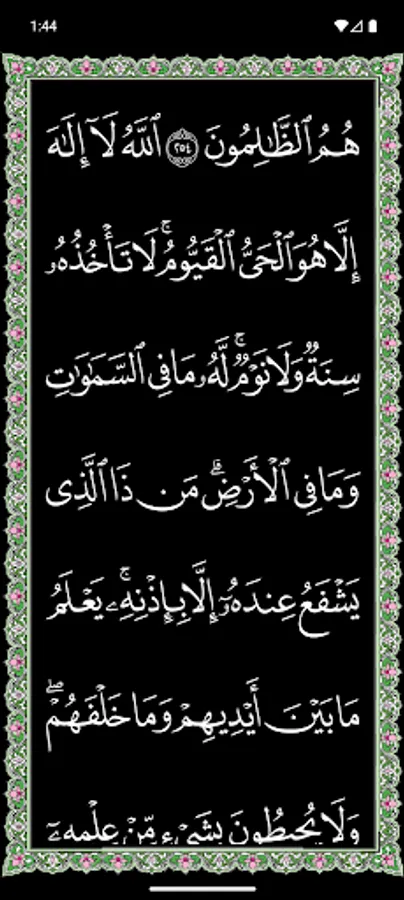 1:44
هُمُ ٱلظَّـٰلِمُونَ ٢٥٤ ٱللَّهُ لَآ إِلَـٰهَ
إِلَّا هُوَ ٱلْحَىُّ ٱلْقَيُّومُ ۚ لَا تَأْخُذُهُۥ
سِنَةٌ وَلَا نَوْمٌ ۚ لَّهُۥ مَا فِى ٱلسَّمَـٰوَٰتِ
وَمَا فِى ٱلْأَرْضِ ۗ مَن ذَا ٱلَّذِى
يَشْفَعُ عِندَهُۥٓ إِلَّا بِإِذْنِهِۦ ۚ يَعْلَمُ
مَا بَيْنَ أَيْدِيهِمْ وَمَا خَلْفَهُمْ ۖ
وَلَا يُحِيطُونَ بِشَىْءٍ مِّنْ عِلْمِهِۦٓ